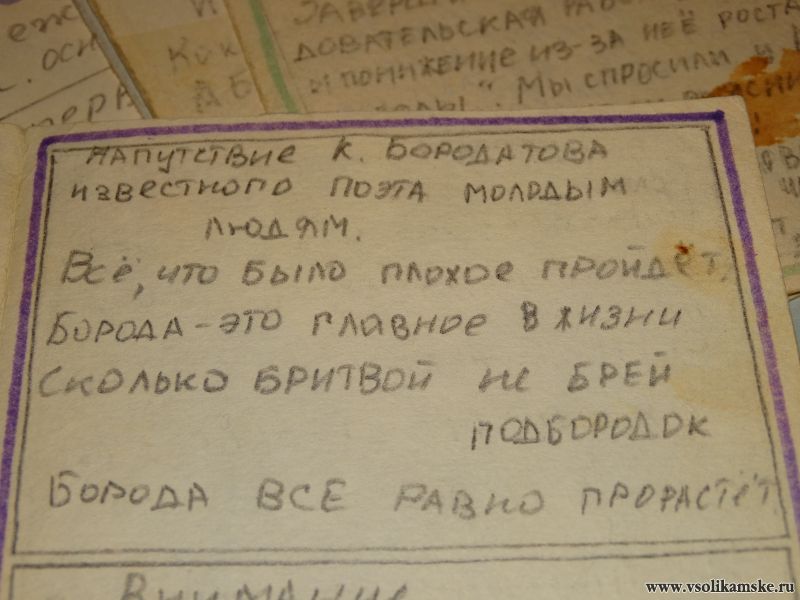 ЕЖ
И
ЗАВЕРШ
. ОСН
КОК
ДОВАТЕЛЬСКАЯ РАБО
АБ
И ПОНИЖЕНИЕ ИЗ-ЗА НЕЁ РОСТА
МЫ СПРОСИЛИ
НАПУТСТВИЕ К. БОРОДАТОВА
ИЗВЕСТНОГО ПОЭТА МОЛОДЫМ
ЛЮДЯМ.
ВСЁ, ЧТО БЫЛО ПЛОХОЕ ПРОЙДЁТ,
БОРОДА - ЭТО ГЛАВНОЕ В ЖИЗНИ
СКОЛЬКО БРИТВОЙ НЕ БРЕЙ
ПОДБОРОДОК
БОРОДА ВСЕ РАВНО ПРОРАСТЁТ.
ВНИМАНИЕ
www.vsolikamske.ru